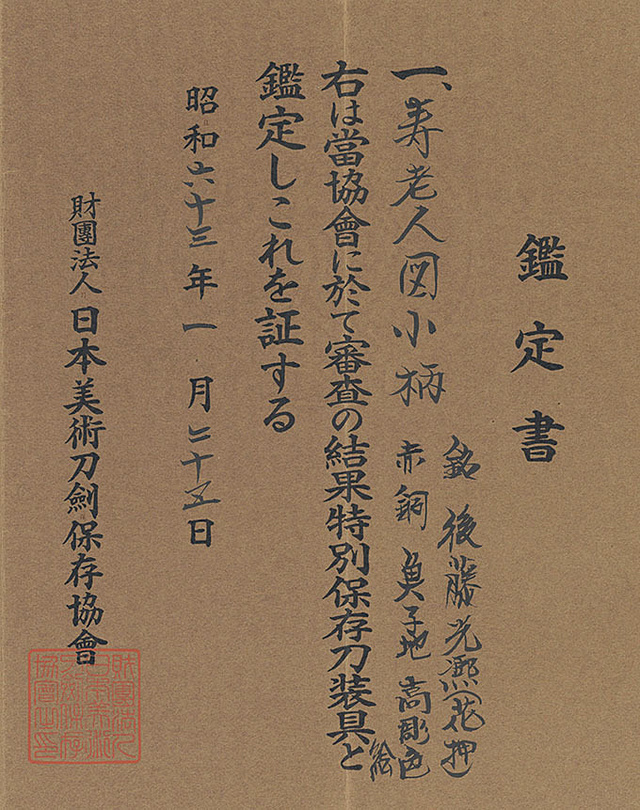 鑑定書
一、寿老人図小柄
銘 後藤光煕(花押)
赤銅魚子地高彫色絵
右は當協會に於て審査の結果特別保存刀装具と
鑑定しこれを証する
昭和六十三年一月二十五日
財團法人日本美術刀劍保存協會